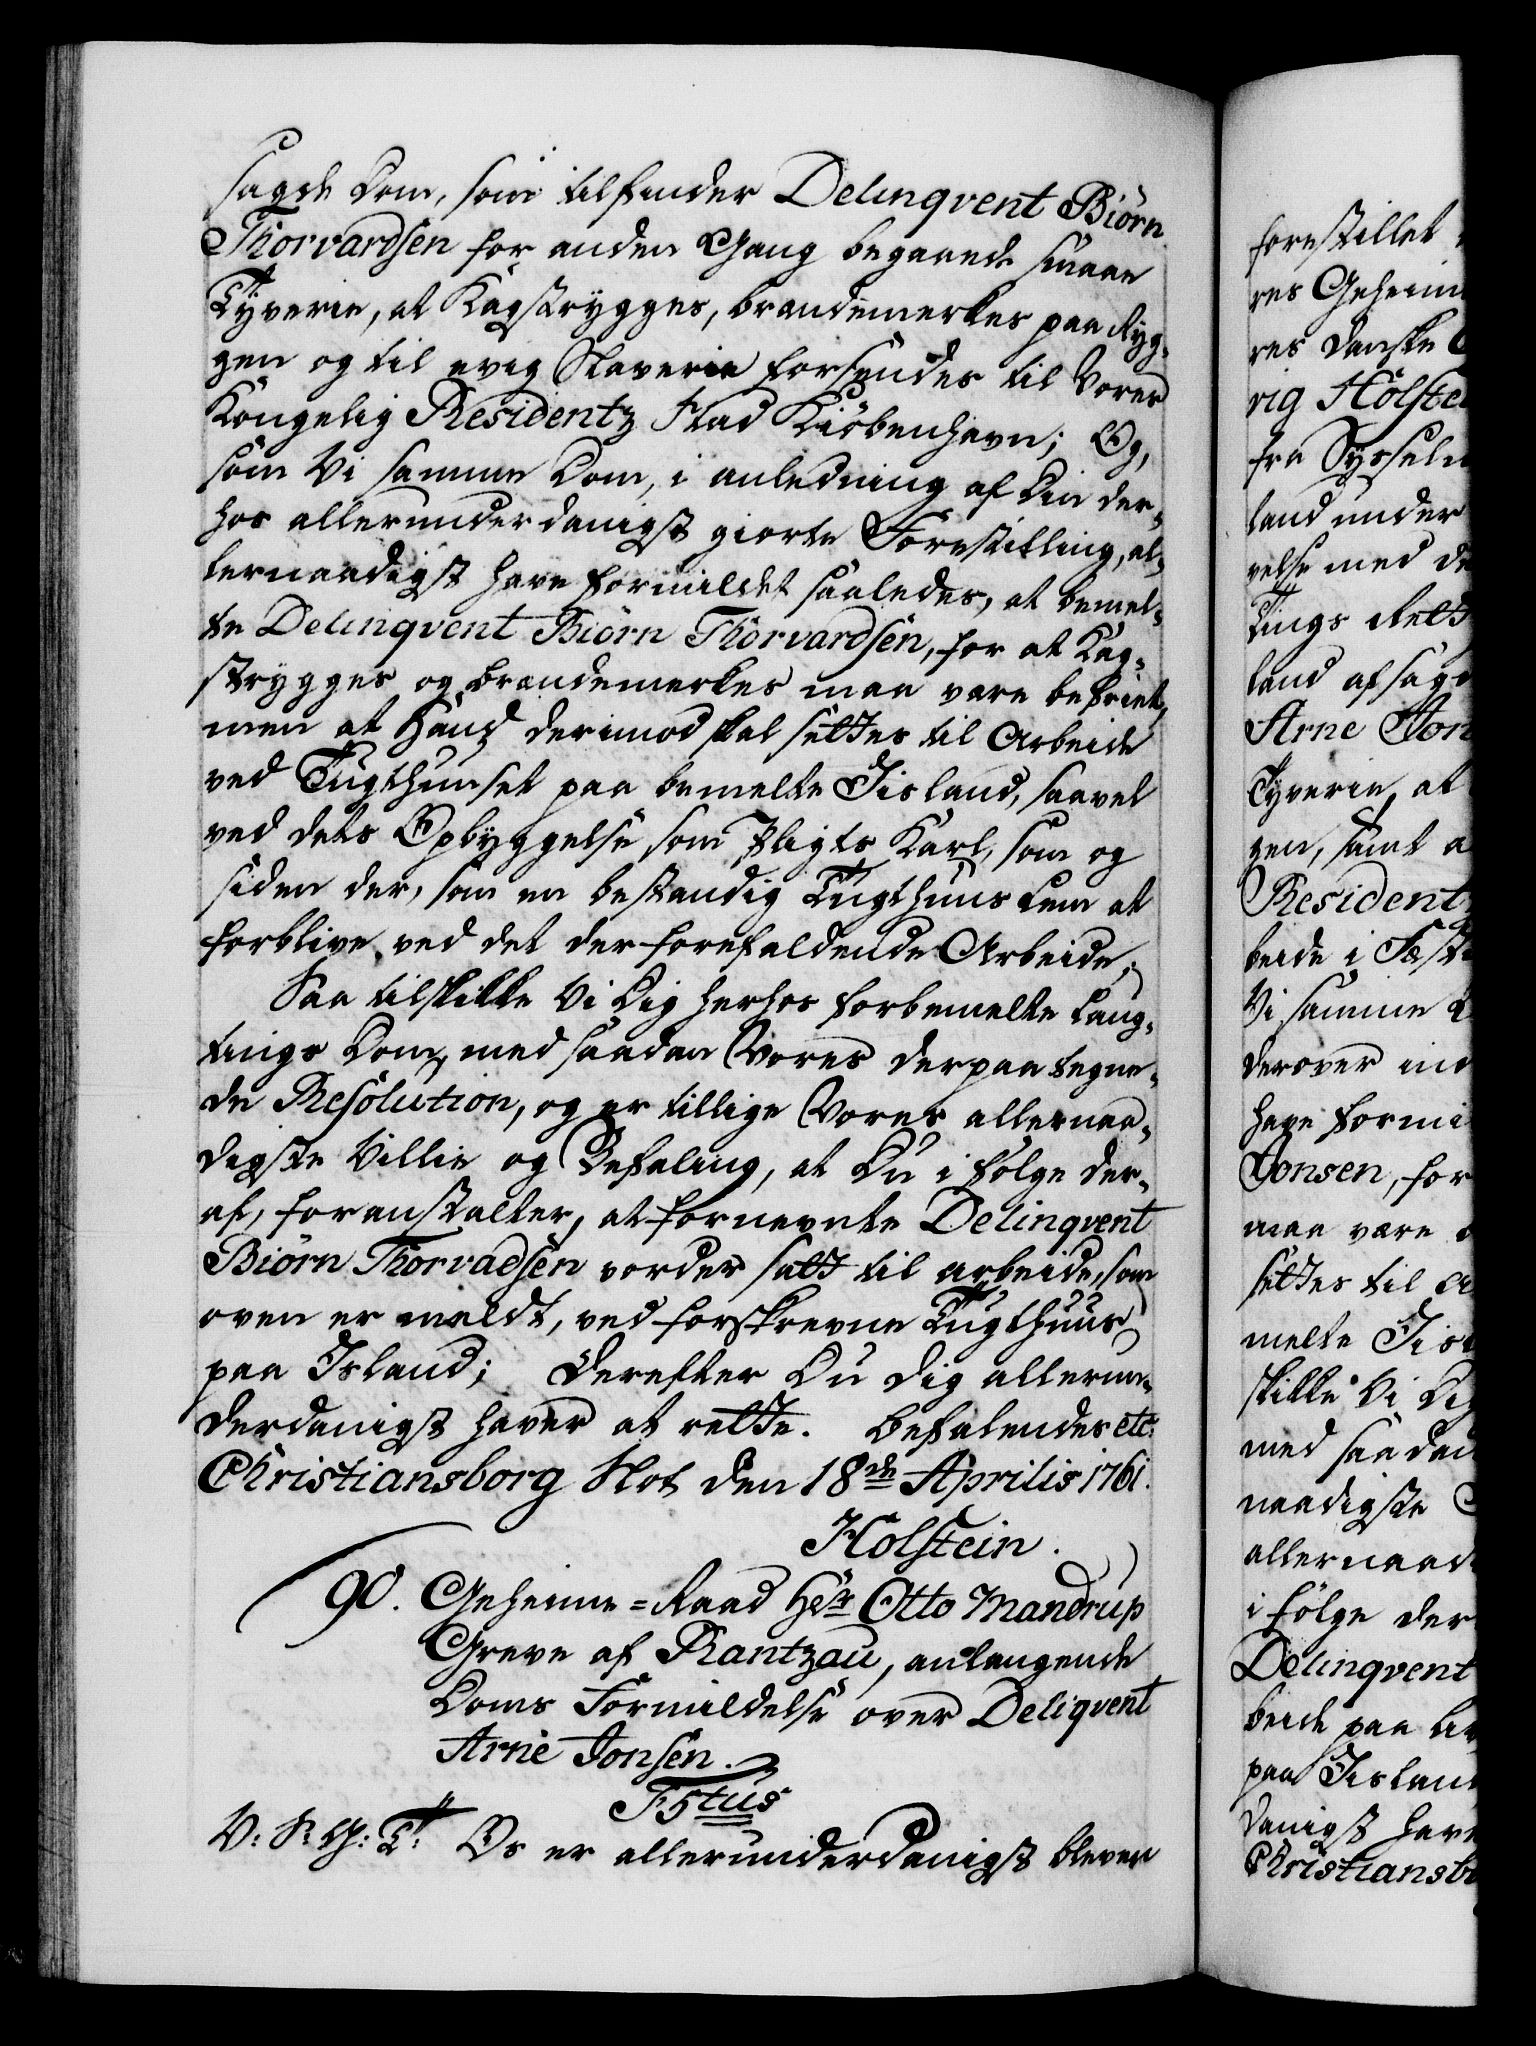 sagde Dom, som tilfinder Delinqvent Biörn
Thorvardsen for anden Gang begaaede smaae
Tyverie, at Kagstrygges, brændemerkes paa Ryg-
gen og til evig Slaverie forsendes til Vores
Kongelig Residentz Stad Kiöbenhavn; Og,
som Vi samme Dom, i anledning af Din der-
hos allerunderdanigst giorte Forestilling, al-
lernaadigst have formildet saaledes, at bemel-
te Delinqvent Biörn Thorvardsen, for at Kag-
strygges og brændemerkes maa være befriet,
men at Hand derimod skal settes til Arbeide
ved Tugthuuset paa bemelte Iisland, saavel
ved dets Opbyggelse som Pligts Karl, som og
siden der, som en bestandig Tugthuus Lem at
forblive ved det der forefaldende Arbeide;
Saa tilskikke Vi Dig herhos forbemelte Laug-
tings Dom, med saadan Vores derpaa tegne-
de Resolution, og er tillige Vores allernaa-
digste Villie og Befaling, at Du i fölge der-
af, foranstalter, at fornevnte Delinqvent
Biörn Thorvadsen vorder satt til arbeide, som
oven er meldt, ved forskrevne Tugthuus
paa Island; Derefter Du dig allerun-
derdanigst haver at rette. Befalendes etc:
Christiansborg Slot den 18de Aprilis 1761.
Holstein.
90. Geheime=Raad Hr Otto Mandrup
Greve af Rantzau, anlangende
Doms Formildelse over Deliqvent
Arne Jonsen.
F5tus
V: S: G: T: Os er allerunderdanigst bleven
forestillet
res Geheim
res Danske
rig Holste
fra Sysselm
land under
velse med D
Tings Rett
land afsag
Arne Jon
Tyverie, at
gen, samt a
Resident
beide i Fæst
Vi samme D
derover ind
have formi
Jonsen, for
maa være
settes til A
melte Iisl
skikke Vi Di
med saadan
naadigste
allernaad
i fölge der
Delinqvent
beide paa
paa Iisland
danigst have
Christiansb